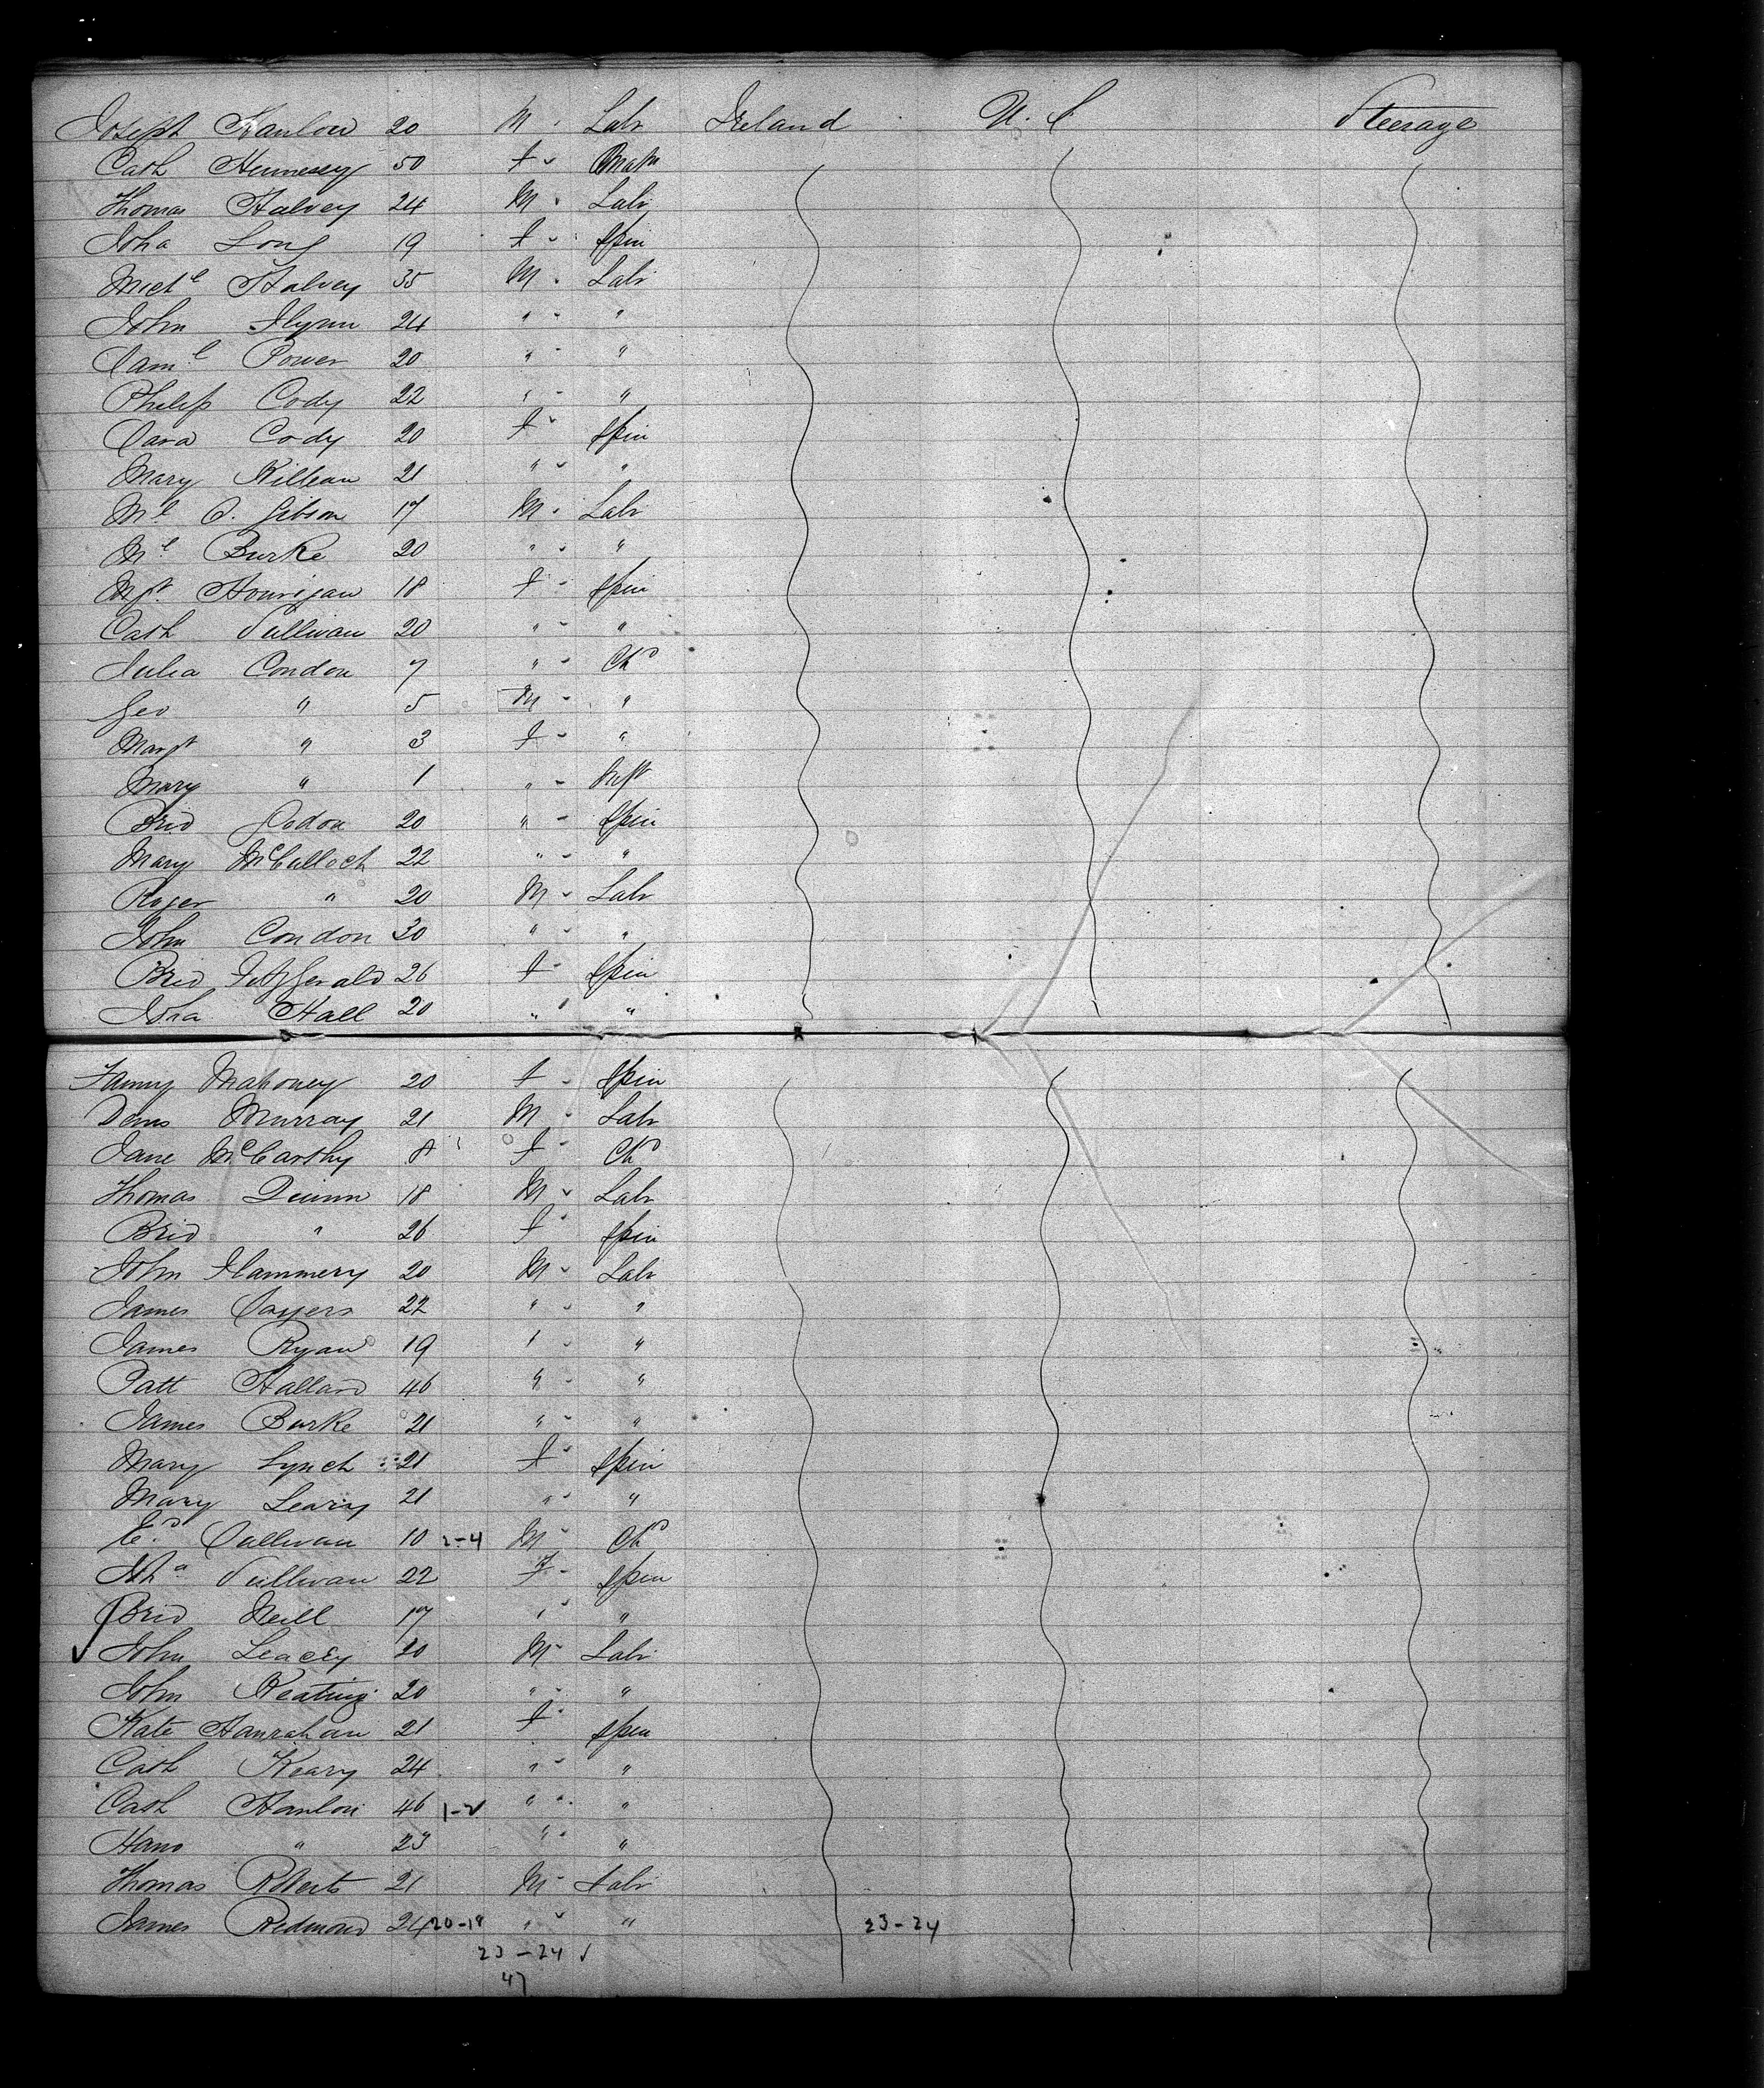 Joseph Hanlon 20 M - Labr Ireland U. S Steerage
Cath Hennessy 50 f - Matn
Thomas Halvey 24 M - Labr
Joha Long 19 f - Spin
Michl Halvey 35 M - Labr
John Flynn 24 " - "
Saml Power 20 " - "
Philip Cody 22 " - "
Sara Cody 20 f - Spin
Mary Killean 21 " - "
Ml O. Gibson 17 M - Labr
Ml Burke 20 " - "
Mgt Hourigan 18 f - Spin
Cath Sullivan 20 " - "
Julia Condon 7 " - Chd
Geo " 5 M - "
Margt " 3 f - "
Mary " 1 " - Inft
Brid 20 " - Spin
Mary McCulloch 22 " - "
Roger " 20 M - Labr
John Condon 30 " - "
Brid Fitzgerald 26 f - Spin
Joha Hall 20 " - "
Fanny Mahoney 20 f - Spin
Denis Murray 21 M - Labr
Jane McCarthy 8 f - Chd
Thomas Quinn 18 M - Labr
Brid " 26 f - Spin
John Flannnery 20 M - Labr
James Sayers 22 " - "
James Ryan 19 " - "
Patt Halland 46 " - "
James Burke 21 " - "
Mary Lynch 21 f - Spin
Mary Leary 21 " - "
Ed Sullivan 10 2-4 M - Chd
Joha Sullivan 22 F - Spin
Brid Neill 17 " - "
John Leacey 20 M - Labr
John Keating 20 " - "
Kate Hanrahan 21 f - Spin
Cath Keary 24 " - "
Cath Hanlon 46 1-2 " - "
Hano " 23 " - "
Thomas Roberts 21 M - Labr
James Redmond 24 20-18 " - " 23-24
23-24 ✓
47